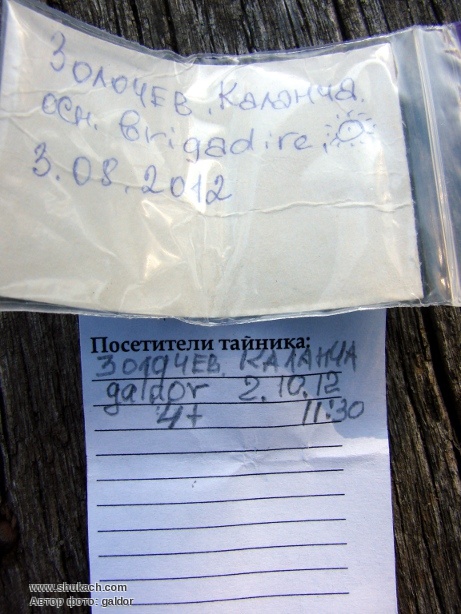 Золочев. Каланча.
осн. brigadire,
3.08.2012
Посетители тайника:
ЗОЛОЧЕВ. КАЛАНЧА
galdor 2.10.12
4+ 11:30
www.shukach.com
Автор фото: galdor